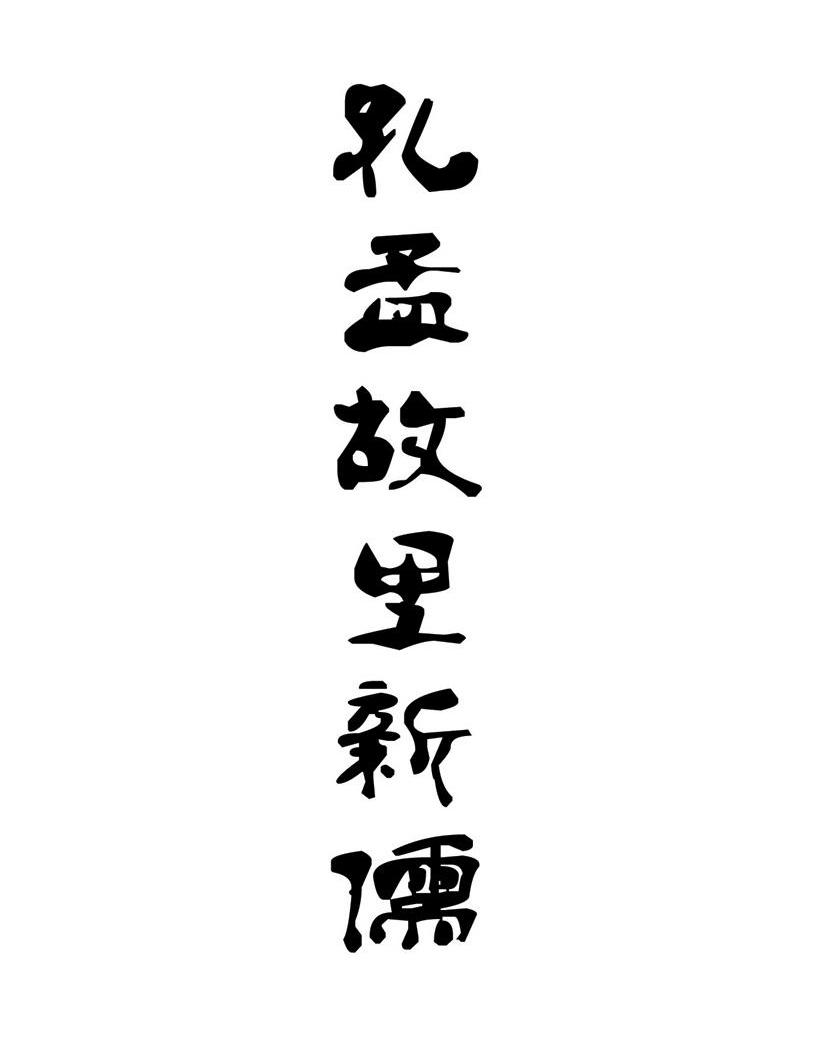 孔孟故里新儒